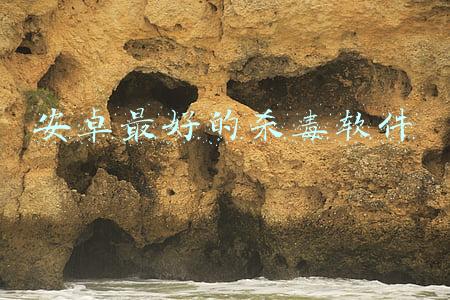 安卓最好的杀毒软件